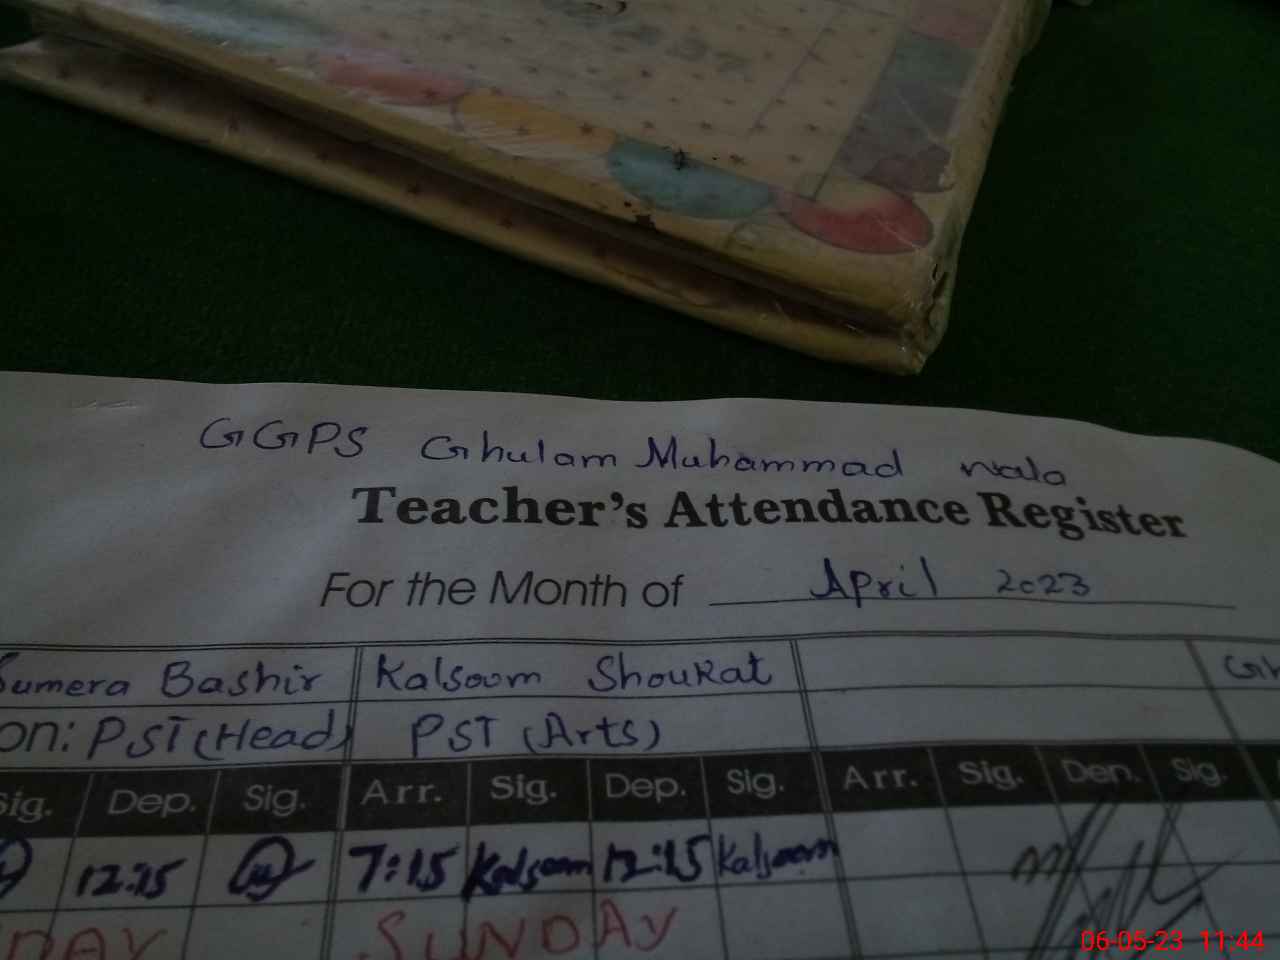 GGPS Ghulam Muhammad wala
Teacher's Attendance Register
For the Month of April 2023
Sumera Bashir Kalsoom Shoukat Gh
on: PST (Head) PST (Arts)
Sig. Dep. Sig. Arr. Sig. Dep. Sig. Arr. Sig. Dep. Sig.
12:15 7:15 Kalsoom 12:15 Kalsoom
DAY SUNDAY
06-05-23 11:44